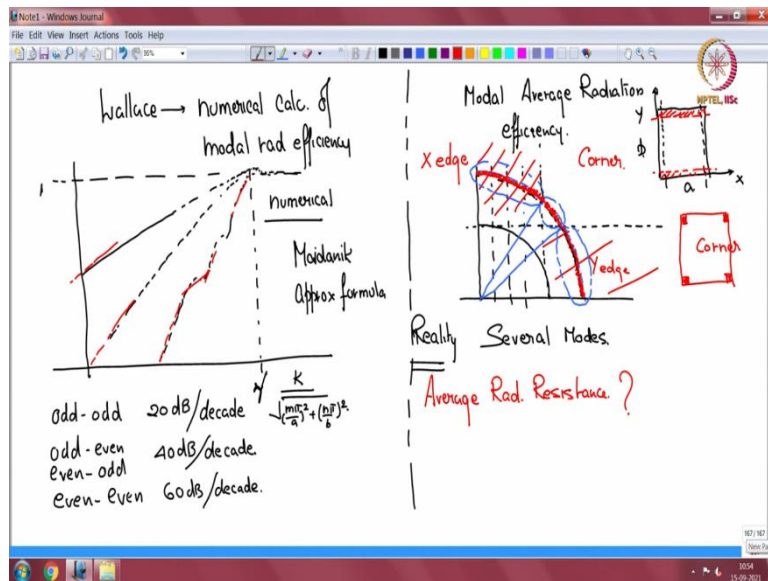 Note1 - Windows Journal
File Edit View Insert Actions Tools Help
95%
B I
NPTEL, IISc
Wallace → numerical calc. of
modal rad efficiency
1
numerical
Maidanik
Approx formula
1
K
√(mπ/a)² + (nπ/b)²
odd-odd 20dB/decade
odd-even
even-odd 40dB/decade.
even-even 60dB/decade.
Modal Average Radiation
efficiency.
X edge
Corner.
Y edge
Y
b
a
X
Corner
Reality Several Modes.
Average Rad. Resistance. ?
167/167
New Pa
10:54
15-09-2021